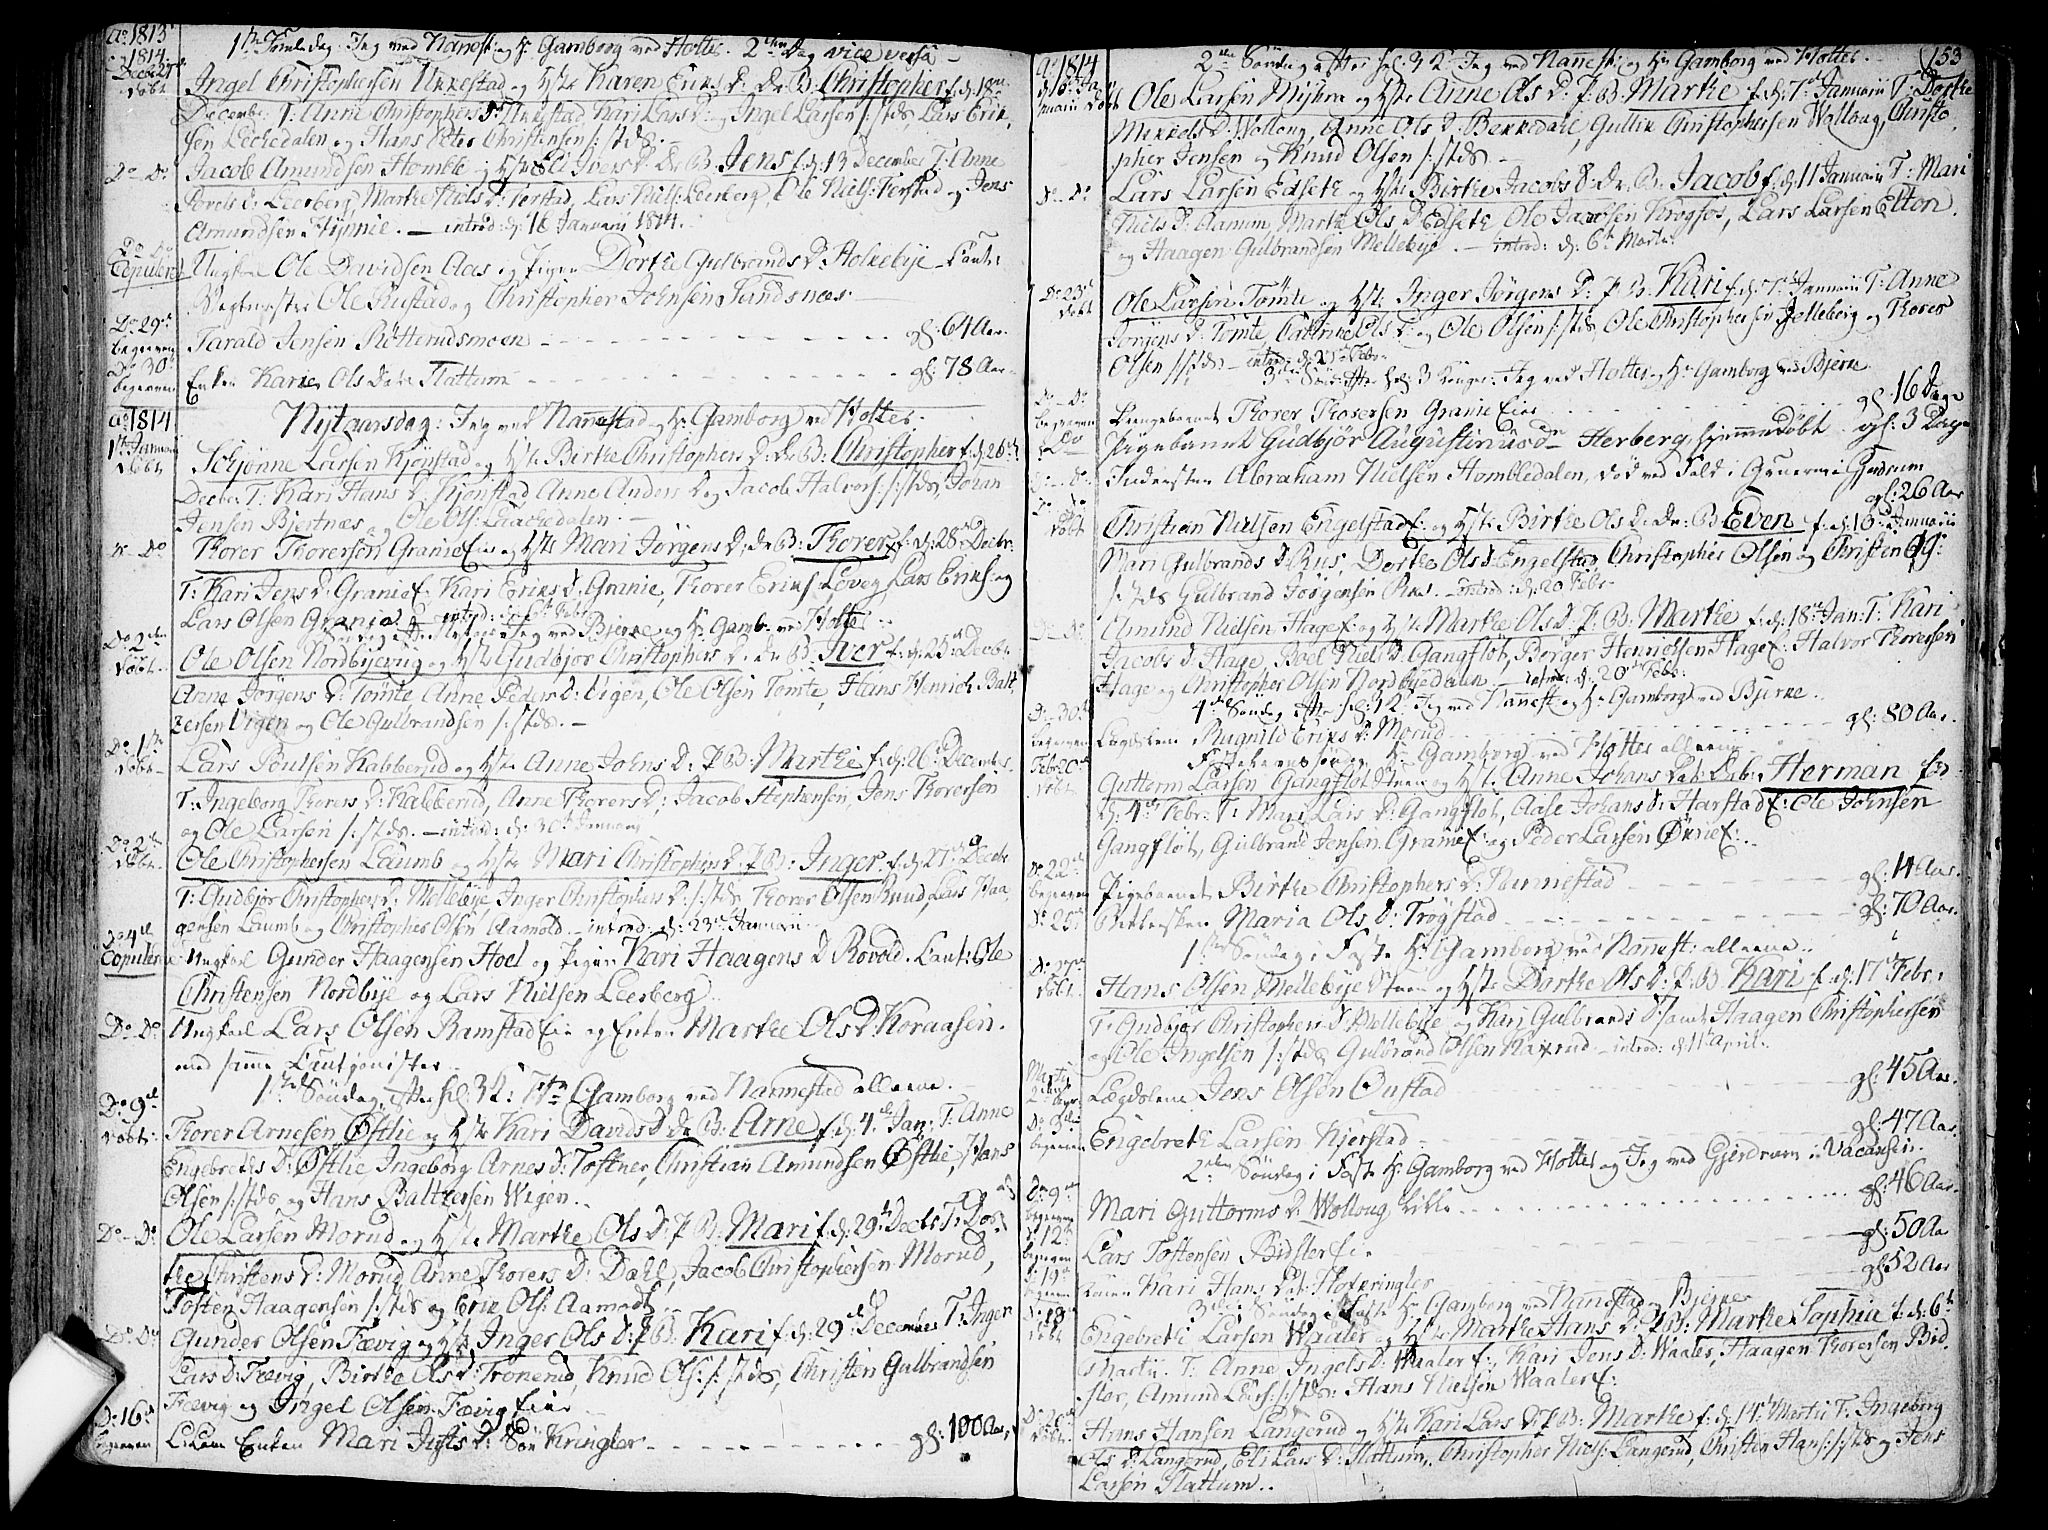 Ao 1813
1814
1ste Juuledag: Jeg ved Nannest: og Hr Gamborg ved Holter. 2den Dag vice versa
Decbr 27 døbt
Ingel Christophersen Ukkestad og Hstr Karen Eriks D: Dr: B: Christopher f. d: 18
Decembr T: Anne Christophers D: Ukkestad, Kari Lars D: og Ingel Larsen s:stds, Lars Erik
sen Lechedalen og Hans Peter Christensen s:stds.
Do - Do
Jacob Amundsen Homble og Hstr Eli Ivers D: Dr: B: Jens f. d: 13 December T: Anne
Povels D: Leerberg, Marthe Niels D: Tierstad, Lars Niels: Leerberg, Ole Niels: Tierstad og Jens
Amundsen. - introd: d: 16 Januarii 1814.
Do Do
Copulered
Ungkarl Ole Davidsen Aas og Pigen Dorthe Gulbrands D: Holkebye - Caut:
Vagtmester Ole Rustad og Christopher Johnsen Sundsnæs.
Do 29de begraven
Tarald Jensen Røtterudsmoen - gl: 64 Aar.
Do 30 begraven
Enken Kari Ols Datr Slattum - gl: 78 Aar.
Ao 1814
Nytaarsdag: Jeg ved Nannestad og Hr Gamborg ved Holter.
1ste Januarii døbt
Schjønne Larsen Kjønstad og Hstr Birthe Christophers D: Dr: B: Christopher f. d: 26
Decbr T: Kari Hans D: Kjønstad, Anne Anders D: og Jacob Halvors: s:stds, Johan
Jensen Bjertnæs og Ole Ols: Laachedalen.
Do Do
Thorer Thorersen Granie Eie og Hstr Mari Jørgens D: dr: B: Thorer f. d: 28 Decbr.
T: Kari Jens D: Granie E. Kari Eriks D: Granie, Thorer Eriks: Løveg, Lars Eriks: og
Lars Olsen Granie - introd: d: 6te Febr.
Jeg ved Bjerke og Hr Gamb: ved Holter
Do 2den døbt
Ole Olsen Nordbyevug og Hstr Gudbjør Christophers D: dr: B: Iver f. d: 25 Decbr
Anne Jørgens D: Tømte, Anne Peders D: Vigen, Ole Olsen Tømte, Hans Henrich Balt
zersen Vigen og Ole Gulbrandsen s:stds.
Do 1ste døbt
Lars Poulsen Kabberud og Hstr Anne Johns D: P: B: Marthe f. d: 26 December
T: Ingeborg Thorers D: Kabberud, Anne Thorers D:, Jacob Stephensen, Jens Thorersen
og Ole Larsen s:stds. - introd: d: 30te Januarii
Do 2den døbt
Ole Christophersen Laumb og Hstr Mari Christophers D: P: B: Inger f. d: 27 Decbr
T: Gudbjør Christophers D: Mellebye, Inger Christophers D: s:stds, Thorer Olsen Ruud, Lars Haa
gensen Laumb og Christopher Olsen Aamold. - introd: d: 23de Januarii
Do 4de
Copulered
Ungkarl Gunder Haagensen Hoel og Pigen Kari Haagens D: Rovold. Caut: Ole
Christensen Nordbye og Lars Nielsen Leerberg.
Do - Do
Ungkarl Lars Olsen Ramstad Eie og Enken Marthe Ols D: Koraasen.
med samme Cautionister.
1ste Søndag efter Hel: 3 K: Hr Gamborg ved Nannestad alleene.
Do 9de døbt:
Thorer Arnesen Østlie og Hstr Kari Davids D: dr: B: Arne f. d: 4de Jan: T: Anne
Engebreths D: Østlie, Ingeborg Arnes D: Toftner, Christian Amundsen Østlie, Hans
Olsen s:stds og Hans Baltzersen Wigen.
Do - Do
Ole Larsen Morud og Hstr Marthe Ols D: P: B: Mari f. d: 29de Decbr T: Dor
the Christens D: Morud, Anne Thorers D: Dahl, Jacob Christophersen Morud,
Tosten Haagensen s:stds og Erik Ols: Aamodt.
Do Do
Gunder Olsen Fævig og Hstr Inger Ols D: P: B: Kari f. d: 29de December T: Inger
Lars D: Fævig, Birthe Ols D: Tronerud, Knud Ols: s:stds, Christen Gulbrandsen
Fævig og Ingel Olsen Fævig Eie.
Do 16de begraven
Enken Mari Justs D: Sør Kringler - gl: 100 Aar.
153
Ao 1814
2den Søndag efter Hel: 3 K: Jeg ved Nannest: og Hr Gamborg ved Holter.
d: 16 Januarii døbt
Ole Larsen Myhra og Hstr Anne Ols D: P: B: Marthe f. d: 7de Januarii T: Dorthe
Mikkels D: Wolloug, Anne Ols D: Bekkedahl, Gullik Christophersen Wolloug, Christo
pher Jensen og Knud Olsen s:stds.
Do Do
Lars Larsen Edseth og Hstr Birthe Jacobs D: Dr: B: Jacob f. d: 11 Januarii T: Mari
Niels D: Aamum, Marthe Ols D: Edseth, Ole Jacobsen Krogsøs, Lars Larsen Elton
og Haagen Gulbrandsen Mellebye. - introd: d: 6te Martii.
Do 23de døbt
Ole Larsen Tømte og Hstr Inger Jørgens D: P: B: Kari f. d: 7de Januarii T: Anne
Jørgens D: Tømte, Cathrine Ols D: og Ole Olsen s:stds, Ole Christophersen Jelleberg og Thorer
Olsen s:stds. - introd: d: 27de Febr.
3die Sønd: efter Hel: 3 Konger: Jeg ved Holter og Hr Gamborg ved Bjerke
Do - Do begraven
Drengebarnet Thorer Thorersen Granie Eie - gl: 16 Dage
Do
Pigebarnet Gudbjør Augustinus D: Herberg, hjemmedøbt. gl: 3 Dage
Do - Do
Inderster Abraham Nielsen Hombledalen, død ved Fald i Gruerne i Gjerdrum
gl: 26 Aar
Do Do døbt
Christian Nielsen Engelstad E: og Hstr Birthe Ols D: Dr: B: Even f. d: 16 Januarii
Mari Gulbrands D: Rus, Dorthe Ols D: Engelstad, Christopher Olsen og Christen Ols:
s:stds, Gulbrand Jørgensen Rus. - introd: d: 20 Febr.
Do - Do
Amund Nielsen Hage E: og Hstr Marthe Ols D: P: B: Marthe f. d: 18 Jan: T: Kari
Jacobs D: Hage, Boel Niels D: Gangfløt, Børger Henrichsen Hage E: Halvor Thorersen
Hage og Christopher Olsen Nordbyedalen - introd: d: 20de Febr:
4de Søndag efter Hel: 3 K: Jeg ved Nannest: og Hr Gamborg ved Bjerke.
Do 30te begraven
Lægdslem Rugnild Eriks D: Morud - gl: 80 Aar.
Fastelavns søndag Hr Gamborg ved Holter alleene
Febr 20de døbt
Guttorm Larsen Gangfløt og Hstr Anne Johans Dat: Dreb: Herman f.
d: 4de Febr: T: Mari Lars D: Gangfløt, Aase Johans D: Harstad E: Ole Johnsen
Gangfløt, Gulbrand Jensen Granie E: og Peder Larsen Ørnie E:
Do 22de begraven
Pigebarnet Birthe Christophers D: Nannestad - gl: 4 Aar.
Do 25
Betlersken Maria Ols D: Trøgstad - gl: 70 Aar.
1ste Søndag i Faste Hr Gamborg ved Nannest: alleene.
Do 27de døbt
Hans Olsen Mellebye og Hstr Dorthe Ols D: P: B: Kari f. d: 17 Febr.
T: Gudbjør Christophers D: Mellebye og Kari Gulbrands D: samt Haagen Christophersen
og Ole Ingelsen s:stds, Gulbrand Olsen Naxrud. - introd: d: 11 April.
Martii 2den begr:
Lægdslem Jens Olsen Onstad - gl: 45 Aar.
Do 3die begraven
Engebreth Larsen Kjerstad - gl: 47 Aar.
2den Søndag i Faste Hr Gamborg ved Holter og Jeg ved Gjerdrum i Vacansen.
Do 9de begraven
Mari Guttorms D: Wolloug Lille - gl: 46 Aar.
d: 12te begraven
Lars Tostensen Bidsler Eie - gl: 50 Aar
d: 19de begraven
Konen Kari Hans Dat: Hoxeringler - gl: 52 Aar
3die Søndag i Faste Hr Gamborg ved Nannestad og Bjerke
Do 13de døbt
Engebreth Larsen Waaler og Hstr Marthe Hans D: P: B: Marthe Sophia f. d: 6te
Martii. T: Anne Ingels D: Waaler E:, Kari Jens D: Waaler, Haagen Thorersen Bid
sler, Amund Lars: s:stds: Hans Nielsen Waaler E:
Do 20de døbt
Hans Hansen Langerud og Hstr Kari Lars D: P: B: Marthe f. d: 14de Martii T: Ingeborg
Ols D: Langerud, Eli Lars D: Slattum, Christopher Niels: Langerud, Christen Hans: s:stds og Jens
Larsen Slattum.